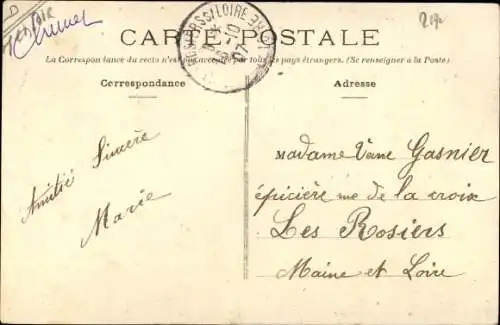 CARTE POSTALE
La Correspondance du recto n'est pas acceptée par tous les pays étrangers. (Se renseigner à la Poste)
Correspondance
Adresse
Amitié Sincère
Marie
Madame Gasnier
épicière rue de la croix
Les Rosiers
Maine et Loire